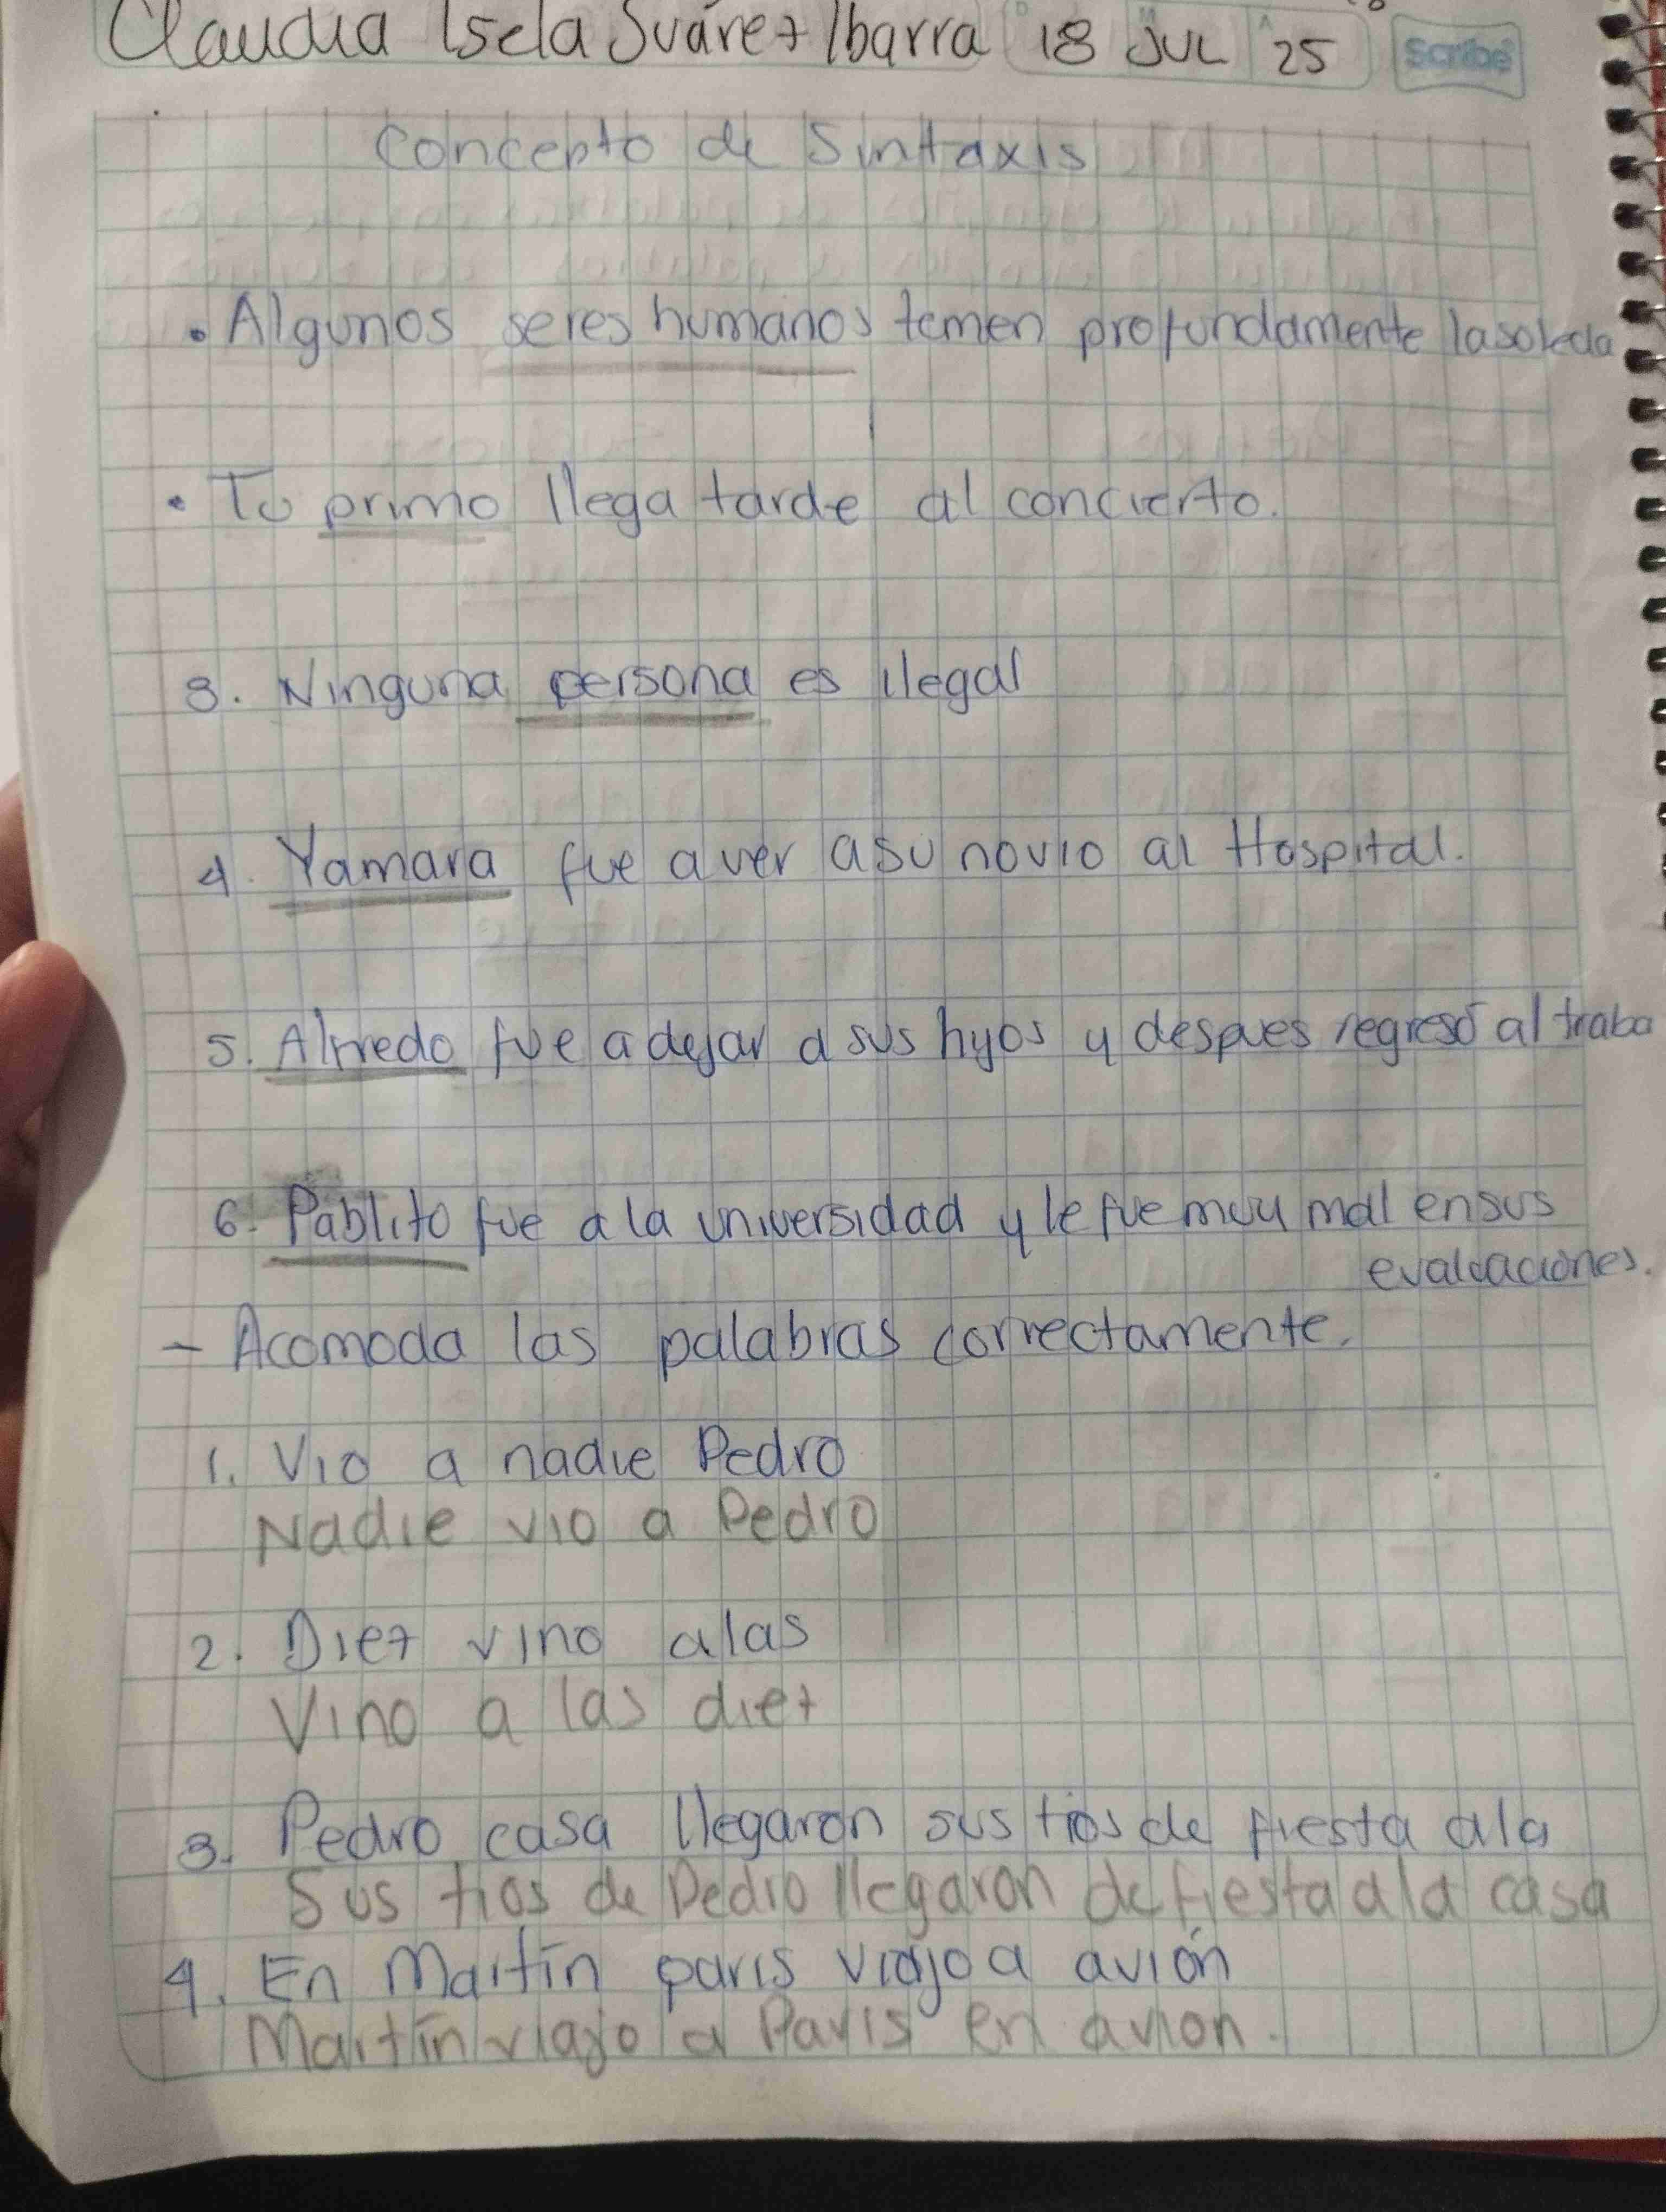 Claudia Isela Suárez Ibarra 18 JUL 25 Scribe
Concepto de Sintaxis
• Algunos seres humanos temen profundamente la soleda
• Tu primo llega tarde al concierto.
3. Ninguna persona es ilegal
4. Yamara fue a ver a su novio al Hospital.
5. Alfredo fue a dejar a sus hijos y despues regresó al traba
6. Pablito fue a la universidad y le fue muy mal en sus
evaluaciones.
- Acomoda las palabras correctamente.
1. Vio a nadie Pedro
Nadie vio a Pedro
2. Diez vino a las
Vino a las diez
3. Pedro casa llegaron sus tios de fiesta a la
Sus tios de Pedro llegaron de fiesta a la casa
4. En Martín paris viajo a avión
Martín viajo a Paris en avion.